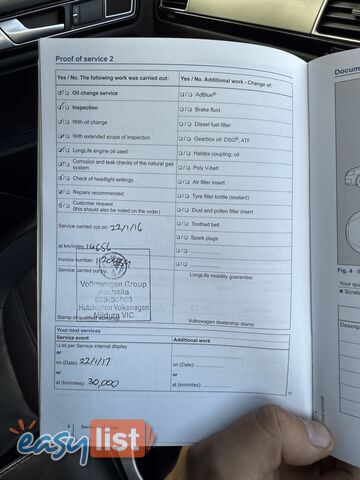 Proof of service 2
Yes / No. The following work was carried out:
Oil change service
Inspection
With oil change
With extended scope of inspection
LongLife engine oil used
Corrosion and leak checks of the natural gas
system
Check of headlight settings
Repairs recommended
Customer request
(this should also be noted on the order)
Service carried out on: 22/1/16
at km/miles: 14656
Invoice number:
Service carried out by:
Volkswagen Group
Australia
Hutchinson Volkswagen
Mildura VIC
Stamp of qualified workshop
Yes / No. Additional work - Change of:
AdBlue®
Brake fluid
Diesel fuel filter
Gearbox oil: DSG®, ATF
Haldex coupling: oil
Poly V-belt
Air filter insert
Tyre filler bottle (sealant)
Dust and pollen filter insert
Toothed belt
Spark plugs
LongLife mobility guarantee:
Volkswagen dealership stamp
Your next services
Service event
as per Service interval display
or
on (Date): 22/1/17
or
at (km/miles): 30,000
Additional work
on (Date):
or
at (km/miles):
8
Docum
Fig. 4
Your qua
Scrat
Descrip
easy list